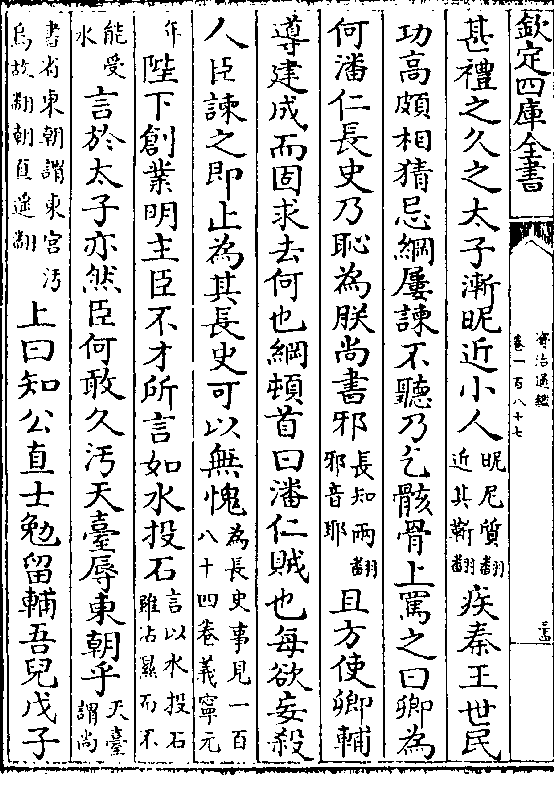 欽定四庫全書
資治通鑑
卷一百八十七
甚禮之久之太子漸昵近小人昵尼質翻近其靳翻疾秦王世民
功高頗相猜忌綱屢諫不聽乃乞骸骨上罵之曰卿為
何潘仁長史乃恥為朕尚書邪長知兩翻邪音耶且方使卿輔
導建成而固求去何也綱頓首曰潘仁賊也每欲妄殺
人臣諫之即止為其長史可以無愧為長史事見一百八十四卷義寧元
年陛下創業明主臣不才所言如水投石言以水投石雖沾濕而不
能受水言於太子亦然臣何敢久汚天臺辱東朝乎天臺謂尚
書省東朝謂東宮汚烏故翻朝直遥翻上曰知公直士勉留輔吾兒戊子